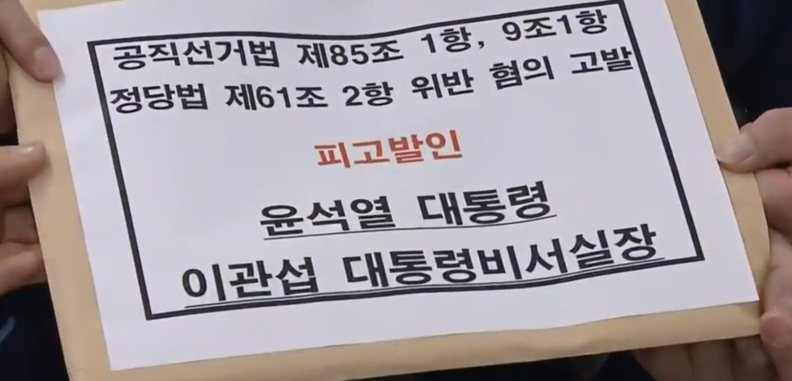 공직선거법 제85조 1항, 9조1항
정당법 제61조 2항 위반 혐의 고발
피고발인
윤석열 대통령
이관섭 대통령비서실장